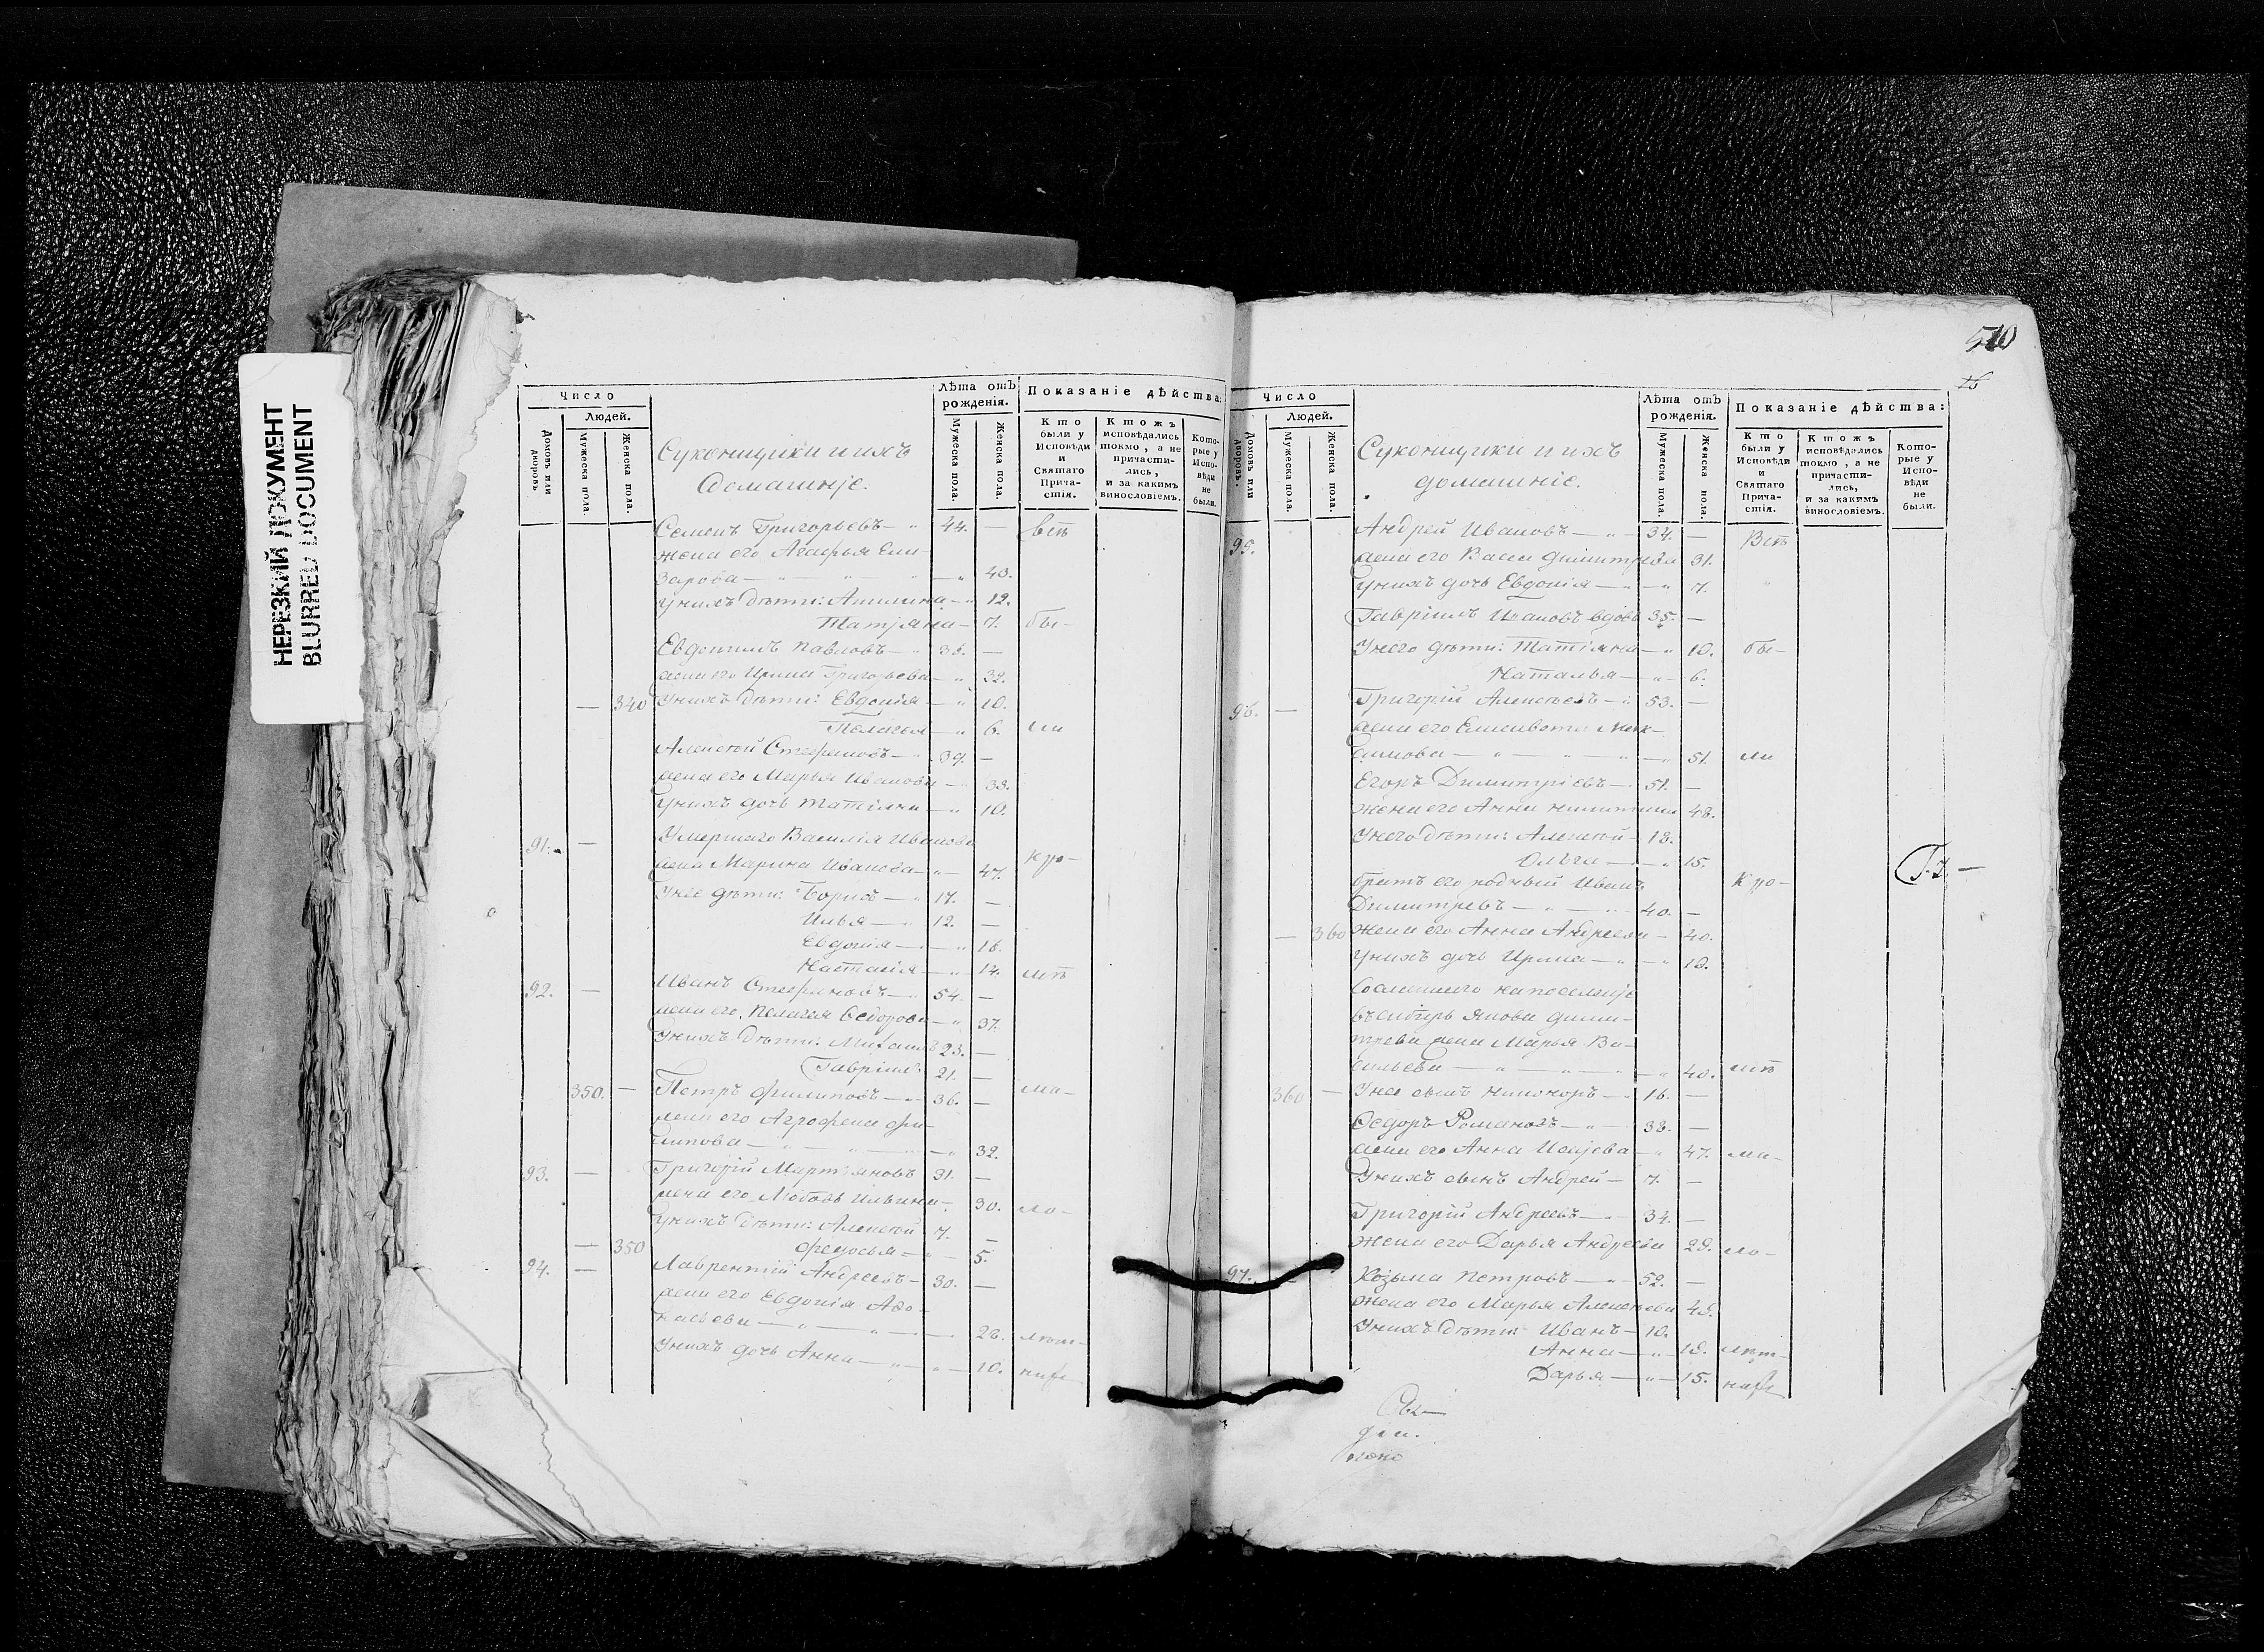 НЕРЕЗКИЙ ДОКУМЕНТ
BLURRED DOCUMENT
Число
Людей.
Домовъ или дворовъ.
Мужеска пола.
Женска пола.
Суконщики и ихъ
Домашніе.
Лѣта отъ рожденія.
Мужеска пола.
Женска пола.
Показаніе дѣйства:
Кто были у Исповѣди и Святаго Прича-стія.
Ктожъ исповѣдались токмо, а не причасти-лись, и за какимъ винословіемъ.
Кото-рые у Испо-вѣди не были.
Семенъ Григорьевъ — 44. — всѣ
жена его Агафья Ели-
зарова — 43.
у нихъ дѣти: Акилина — 12.
Татіяна — 7. бы-
Евдокимъ Павловъ — 36. —
жена его Ирина Григорьева — 32.
— 340 У нихъ дѣти: Евдокія — 10.
Пелагея — 6. ли
Алексѣй Стефановъ — 39. —
жена его Марья Иванова — 33.
у нихъ дочь Татіяна — 10.
91. — Умершаго Василія Иванова
жена Марина Иванова — 47. у про-
У нее дѣти: Борисъ — 17. —
Илья — 12. —
Евдокія — 16.
Настасія — 14.
92. — Иванъ Стефановъ — 54. —
жена его Пелагея Федорова — 37.
У нихъ дѣти: Михаилъ 23. —
Гавріилъ 21. —
350. — Петръ Филиповъ — 36. —
жена его Агрофена Фи-
липова — 32.
93. — Григорій Мартіяновъ 31. —
жена его Любовь Ильина — 30.
у нихъ дѣти: Алексѣй 7. —
— 350 Федосья — 5.
94. — Лаврентій Андреевъ — 30. —
жена его Евдокія Афо-
насьева — 28.
У нихъ дочь Анна — 10.
510
Число
Людей.
Домовъ или дворовъ.
Мужеска пола.
Женска пола.
Суконщики и ихъ
домашніе.
Лѣта отъ рожденія.
Мужеска пола.
Женска пола.
Показаніе дѣйства:
Кто были у Исповѣди и Святаго Прича-стія.
Ктожъ исповѣдались токмо, а не причасти-лись, и за какимъ винословіемъ.
Кото-рые у Испо-вѣди не были.
95. Андрей Ивановъ — 34. — Всѣ
жена его Васса Димитрева 31.
у нихъ дочь Евдокія — 7.
Гавріилъ Ивановъ вдовъ 35. —
У него дѣти: Татіяна — 10. бы-
Наталья — 6.
96. — Григорій Алексѣевъ — 53. —
жена его Елисавета Мак-
симова — 51. ли
Егоръ Димитріевъ — 51. —
жена его Анна Никитина 48.
У него дѣти: Алексѣй — 18.
Ольга — 15.
братъ его родный Иванъ
Димитревъ — 40. —
— 360 жена его Анна Андреева — 40.
У нихъ дочь Ирина — 18.
Сосланнаго на поселеніе
въ Сибирь Якова Дими-
трева жена Марья Ва-
сильева — 40.
360 — У нее сынъ Никоноръ — 16. —
Федоръ Романовъ — 38. —
жена его Анна Исаіева — 47.
У нихъ сынъ Андрей — 7. —
Григорій Андреевъ — 34. —
жена его Дарья Андреева 28.
97. — Козьма Петровъ — 52. —
жена его Марья Алексѣева 48.
У нихъ дѣти: Иванъ — 10.
Анна — 18.
Дарья — 15.